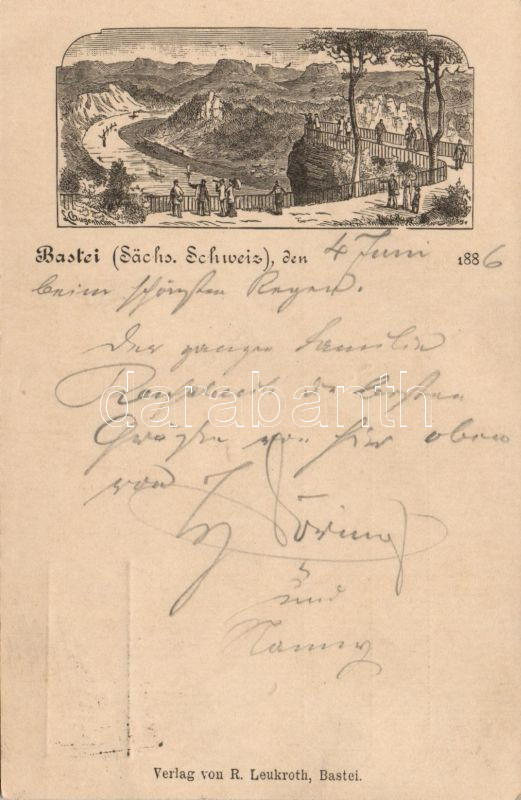 Bastei (Sächs. Schweiz), den 4 Juni 1886
beim schönsten Regen.
Der ganzen Familie
die besten
Grüße von hier oben
von
und
Nanny
darabanth.com
Verlag von R. Leukroth, Bastei.